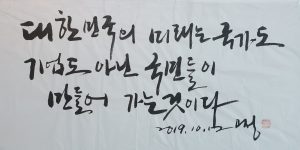 대한민국의 미래는 국가도
기업도 아닌 국민들이
만들어 가는것이다
2019.10.1